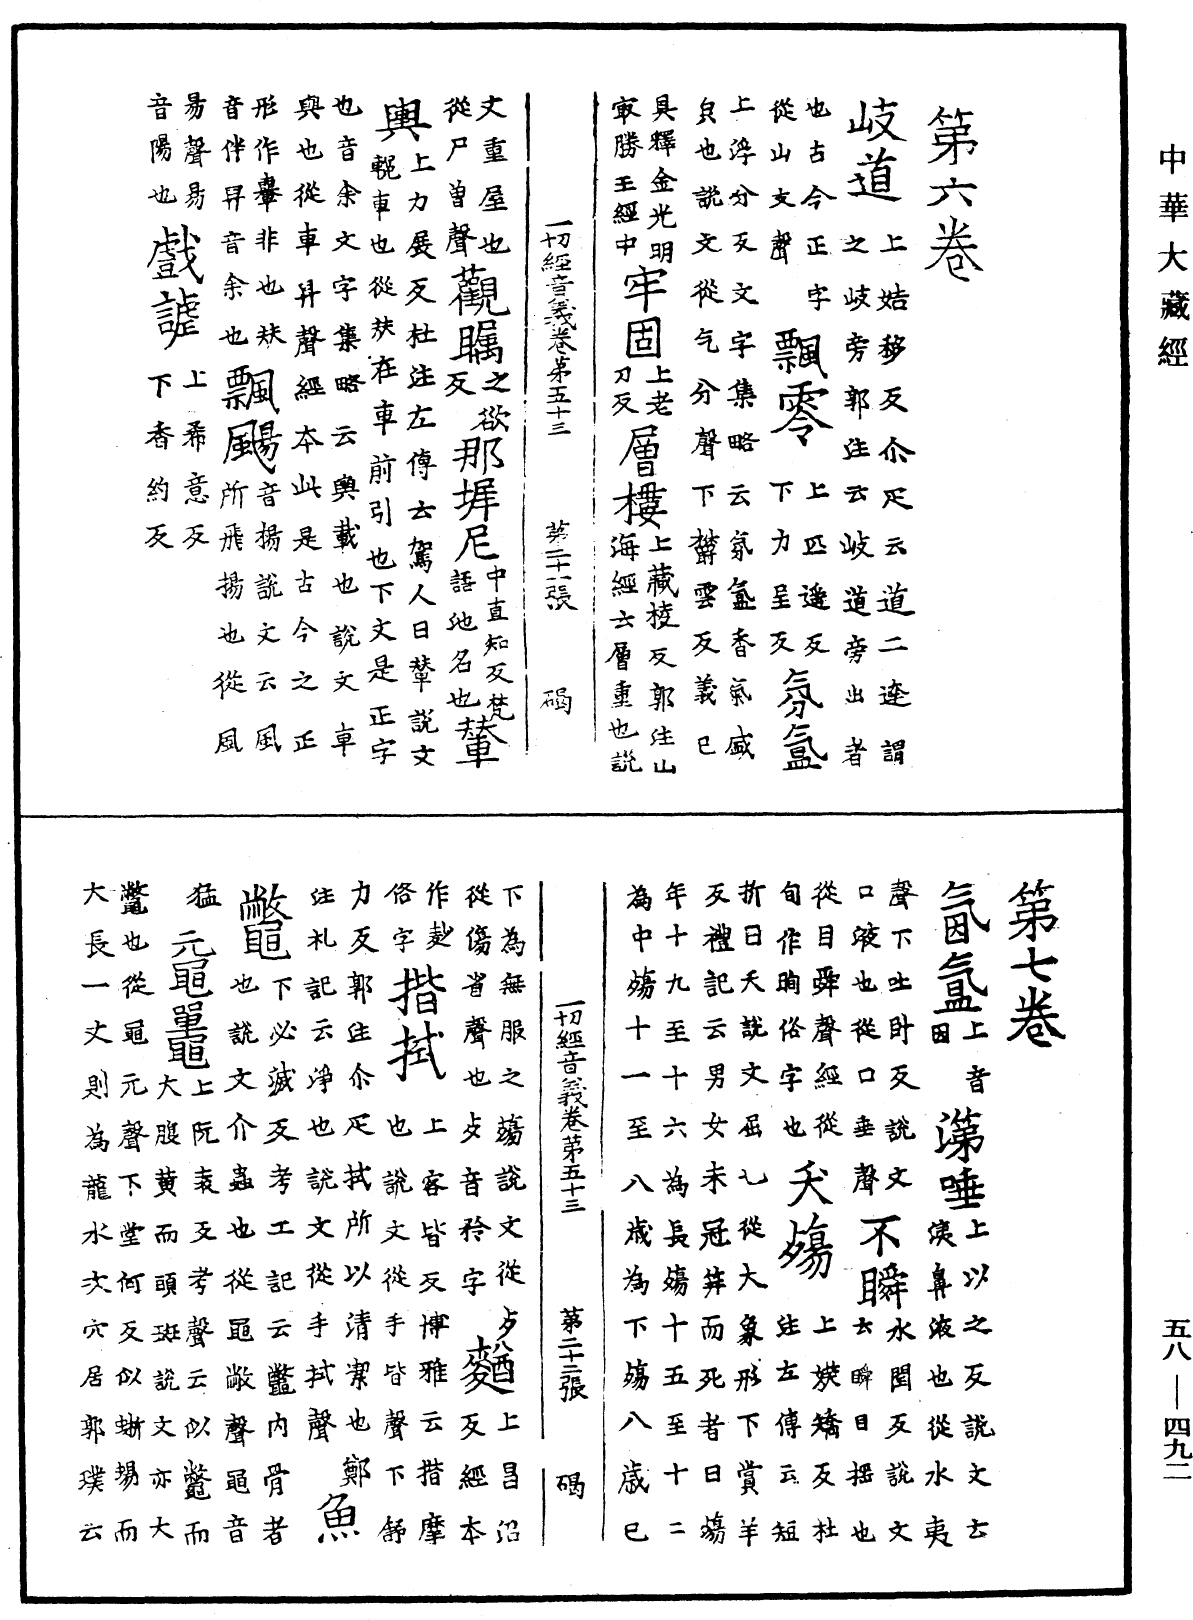 中華大藏經
第六卷
岐道上姞移反尒疋云道二達謂
之岐旁郭注云岐道旁出者
也古今正字
從山支聲飄零上匹遥反
下力呈反氛氳
上浮分反文字集略云氛氳香氣盛
皃也説文從气分聲下欝雲反義已
具釋金光明
㝡勝王經中牢固上老
刀反層樓上藏棱反郭注山
海經云層重也説
一切經音義卷第五十三 第二十一張 碣
文重屋也
從尸曾聲觀矚之欲
反那墀尼中直知反梵
語地名也輦
輿上力展反杜注左傳云駕人曰輦説文
輓車也從㚘在車前引也下文是正字
也音余文字集略云輿載也説文車
輿也從車舁聲經本此是古今之正
形作轝非也㚘
音伴舁音余也飄颺音揚説文云風
所飛揚也從風
昜聲昜
音陽也戲謔上希意反
下香約反
第七卷
氤氳上音
因涕唾上以之反説文云
洟鼻液也從水夷
聲下吐卧反説文
口液也從口垂聲不瞬水閏反説文
云瞬目摇也
從目舜聲經從
旬作眴俗字也夭殤上娱矯反杜
注左傳云短
折曰夭説文屈乚從大象形下賞羊
反禮記云男女未冠笄而死者曰殤
年十九至十六為長殤十五至十二
為中殤十一至八歲為下殤八歲已
一切經音義卷第五十三 第二十二張 碣
下為無服之殤説文從歹
從傷省聲也歹音矜字麨上昌沼
反經本
作麨
俗字揩拭上客皆反博雅云揩摩
也説文從手皆聲下舒
力反郭注尒疋拭所以清潔也鄭
注礼記云淨也説文從手拭聲魚
鼈下必滅反考工記云鼈内骨者
也説文介蟲也從黽敝聲黽音
猛黿鼉上阮袁反考聲云似鼈而
大腹黄而頭斑説文亦大
鼈也從黽元聲下堂何反似蜥蜴而
大長一丈則為龍水次穴居郭璞云
五八—四九二